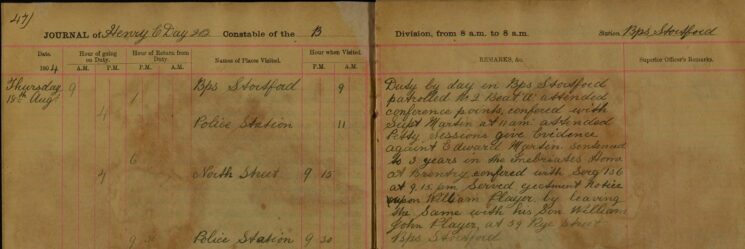 47)
JOURNAL of Henry C Day 202 Constable of the B Division, from 8 a.m. to 8 a.m. Station Bps Stortford
Date. Hour of going on Duty. Hour of Return from Duty. Names of Places Visited. Hour when Visited. REMARKS, &c. Superior Officer's Remarks.
1904 A.M. P.M. A.M. P.M. P.M. A.M.
Thursday 9 Bps Stortford 9 Duty by day in Bps Stortford
18th Aug 1 patrolled No 2 Beat "A" attended
4 conference points, confered with
Police Station 11 Supt Martin at 11 am attended
Petty Sessions give Evidence
6 againt Edward Martin sentenced
7 North Street 9 15 to 3 years in the Inebriates Home
at Brentry confered with Serg 136
at 9.15 pm Served ejectment Notice
upon William Player by leaving
the Same with his Son William
John Player, at 59 Rye Street
9 30 Police Station 9 30 Bps Stortford